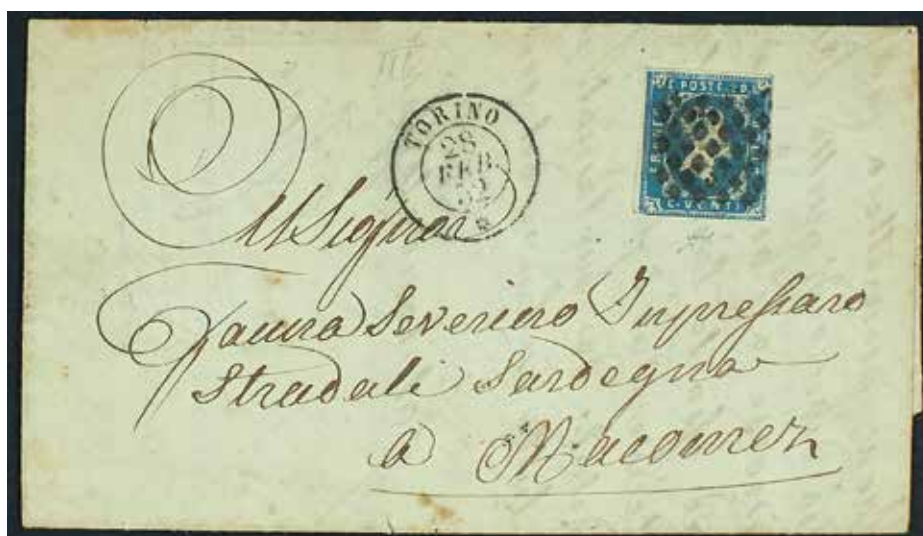 TORINO
28
FEB
52
POSTE
C. VENTI
Al Signor
Severino Impressaro
Stradali Sardegna
a Macomer